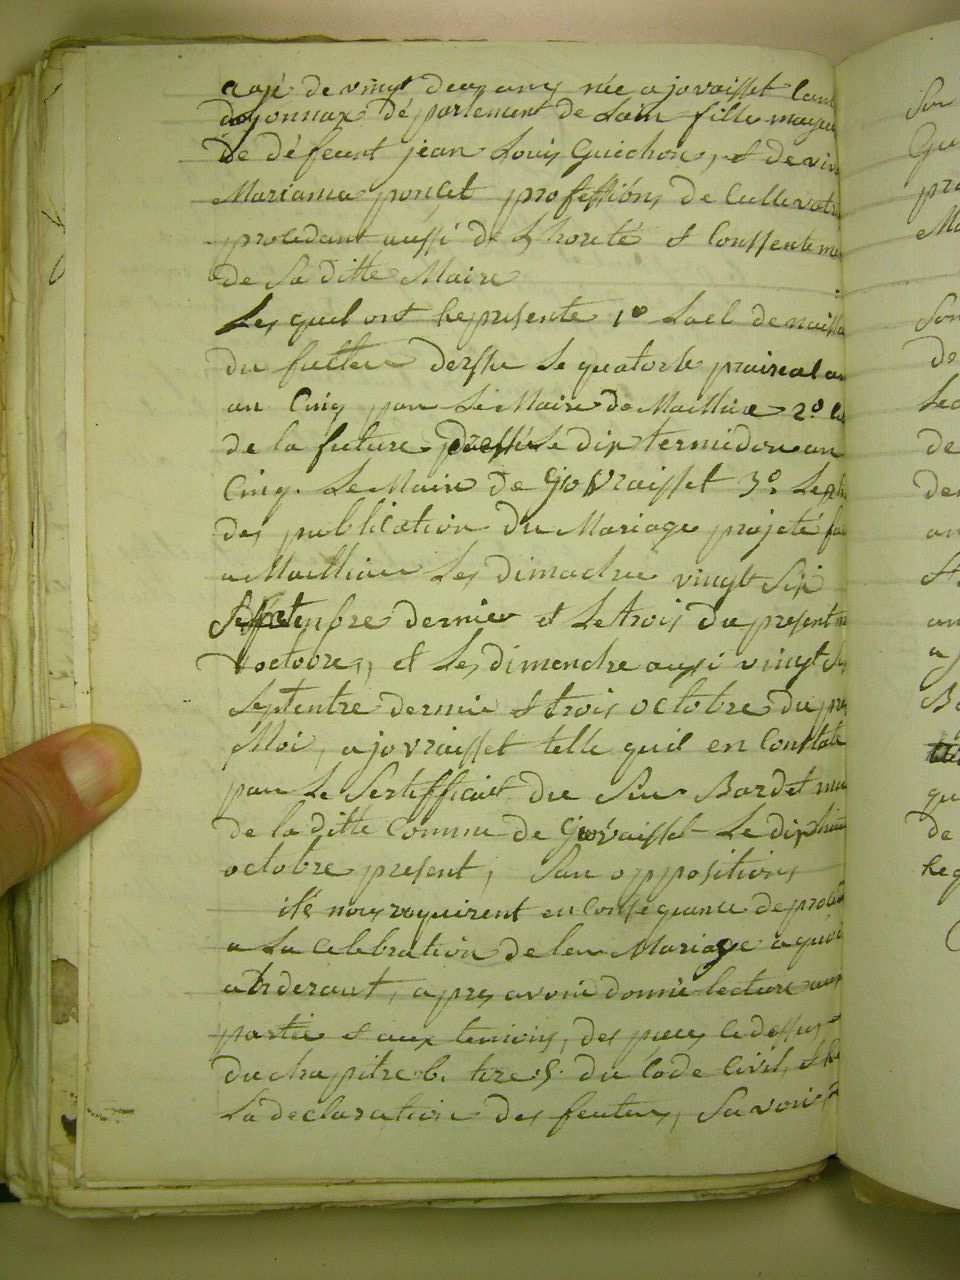 agé de vingt deux ans née a jovraisset Cant
doyonnax département de Lain fille mageu
de défeunt jean Louis Guichon, et de viv
Marianne poncet professions de Cultevatr
procedant aussi de Lhoreté et Conssenteme
de Sa ditte Maire
Les quel ont Represente 1º Lacl de naissa
du fuctur dersse Le quatorze prairéal a
an Cinq par Le Maire de Maillia 2º
de la future dressée Le dix termidor an
Cinq. Le Maire de Govraisset 3º.
des publication du Mariage projeté fa
a Maillia Les dimache vingt Six
Septenbre dernier et Le trois du present m
doctobre, et Les dimenche aussi vingt Six
Septentre dernie et trois octobre du pre
Moi, a jovraisset telle quil en Constate
par Le Sertifficat du Sieur Bardet m
de la ditte Commune de Govraisset Le dix huit
octobre present, San oppositions
ils nous requirent en Consequance de proc
a La celebration de leur Mariage a quoi
adderant, apres avoir donné lecture aux
partie et aux temoins, des pieces cidessus
du chapitre 6. titre 5. du Code Civil, et
La declaration des feuturs, Savoir
Sur
Gu
pre
Ma
Son
de
Lec
de
de
an
St
an
a
Ba
qu
de
Req